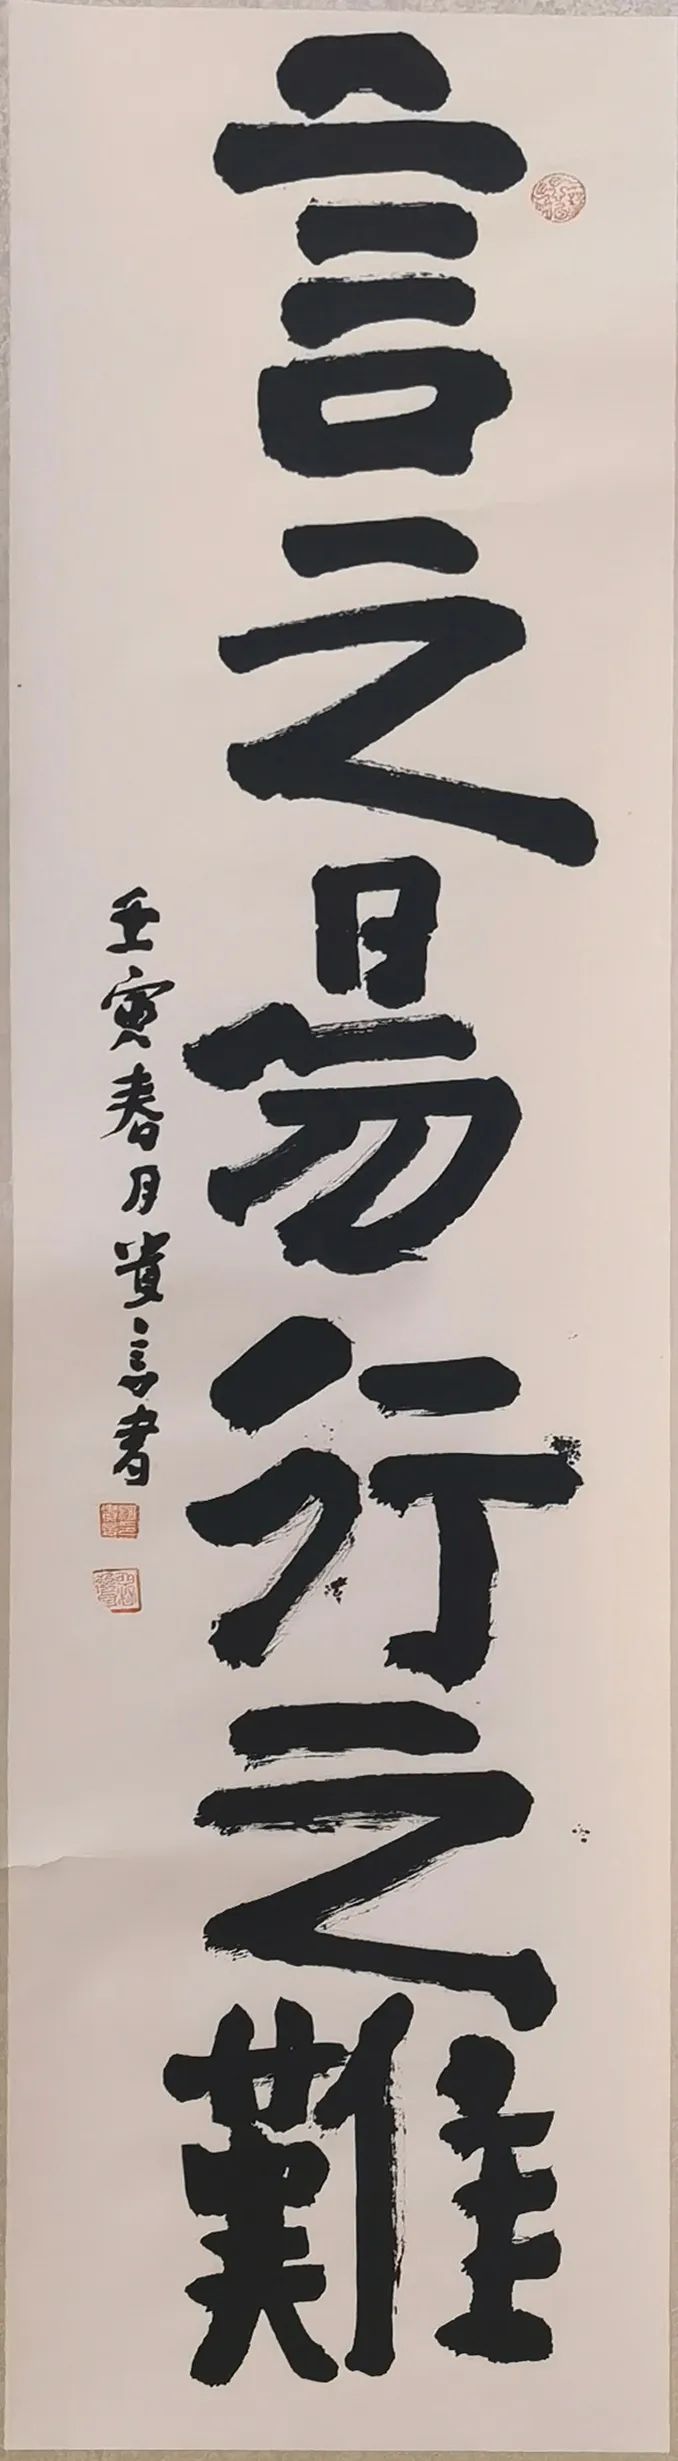 言之易行之難
壬寅春月貴言書